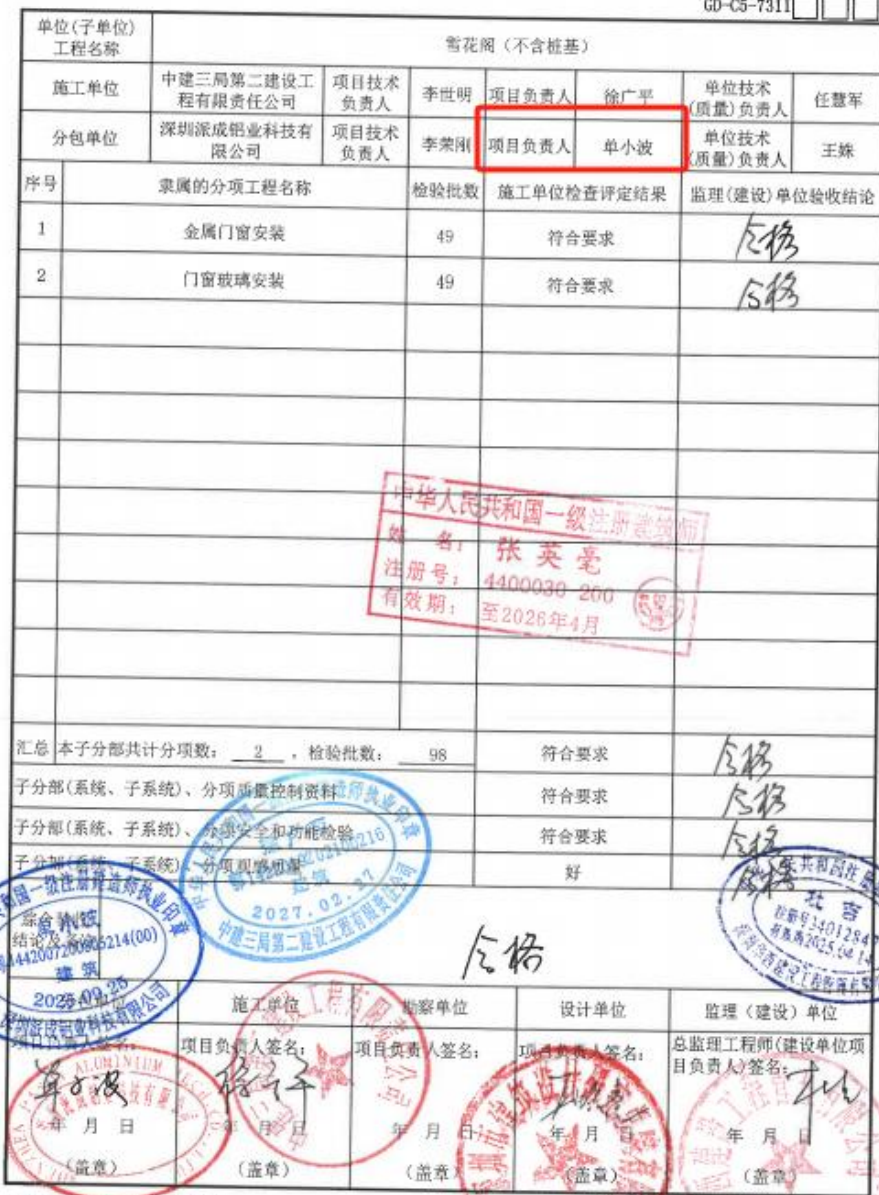 GD-C5-7311
单位(子单位)
工程名称
雪花阁（不含桩基）
施工单位
中建三局第二建设工
程有限责任公司
项目技术
负责人
李世明
项目负责人
徐广平
单位技术
(质量)负责人
任慧军
分包单位
深圳派成铝业科技有
限公司
项目技术
负责人
李荣刚
项目负责人
单小波
单位技术
(质量)负责人
王姝
序号
隶属的分项工程名称
检验批数
施工单位检查评定结果
监理(建设)单位验收结论
1
金属门窗安装
49
符合要求
合格
2
门窗玻璃安装
49
符合要求
合格
中华人民共和国一级注册建筑师
姓 名：张英毫
注册号：4400030 200
有效期：至2026年4月
汇总
本子分部共计分项数： 2 ，检验批数： 98
符合要求
合格
子分部(系统、子系统)、分项质量控制资料
符合要求
合格
子分部(系统、子系统)、分项安全和功能检验
符合要求
合格
子分部(系统、子系统)、分项观感质量
好
合格
建筑
2027.02.27
中建三局第二建设工程有限责任公司
综合验收
单小波
建筑
2025.09.25
合格
施工单位
勘察单位
设计单位
监理（建设）单位
项目负责人签名：
项目负责人签名：
项目负责人签名：
项目负责人签名：
总监理工程师(建设单位项
目负责人)签名：
单小波
徐广平
ALUMINIUM
年 月 日
年 月 日
年 月 日
年 月 日
年 月 日
（盖章）
（盖章）
（盖章）
（盖章）
（盖章）